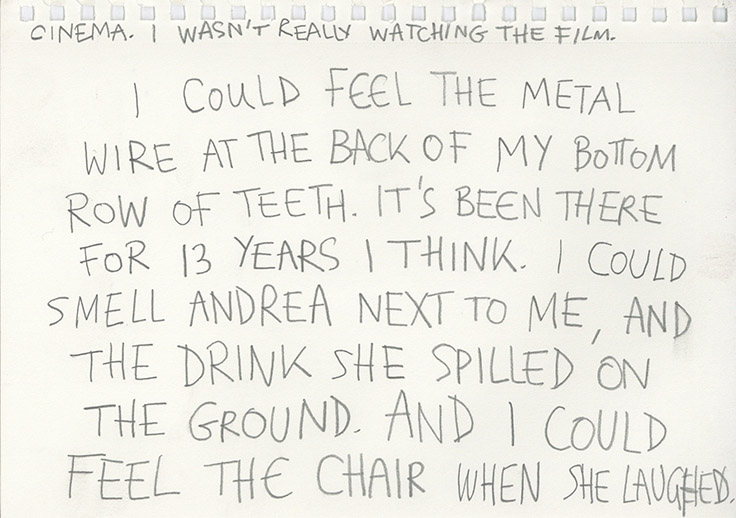 CINEMA. I WASN'T REALLY WATCHING THE FILM.
I COULD FEEL THE METAL
WIRE AT THE BACK OF MY BOTTOM
ROW OF TEETH. IT'S BEEN THERE
FOR 13 YEARS I THINK. I COULD
SMELL ANDREA NEXT TO ME, AND
THE DRINK SHE SPILLED ON
THE GROUND. AND I COULD
FEEL THE CHAIR WHEN SHE LAUGHED.